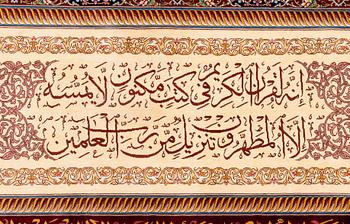 إنه لقرآن كريم في كتب مكنون لا يمسه
إلا المطهرون تنزيل من رب العلمين